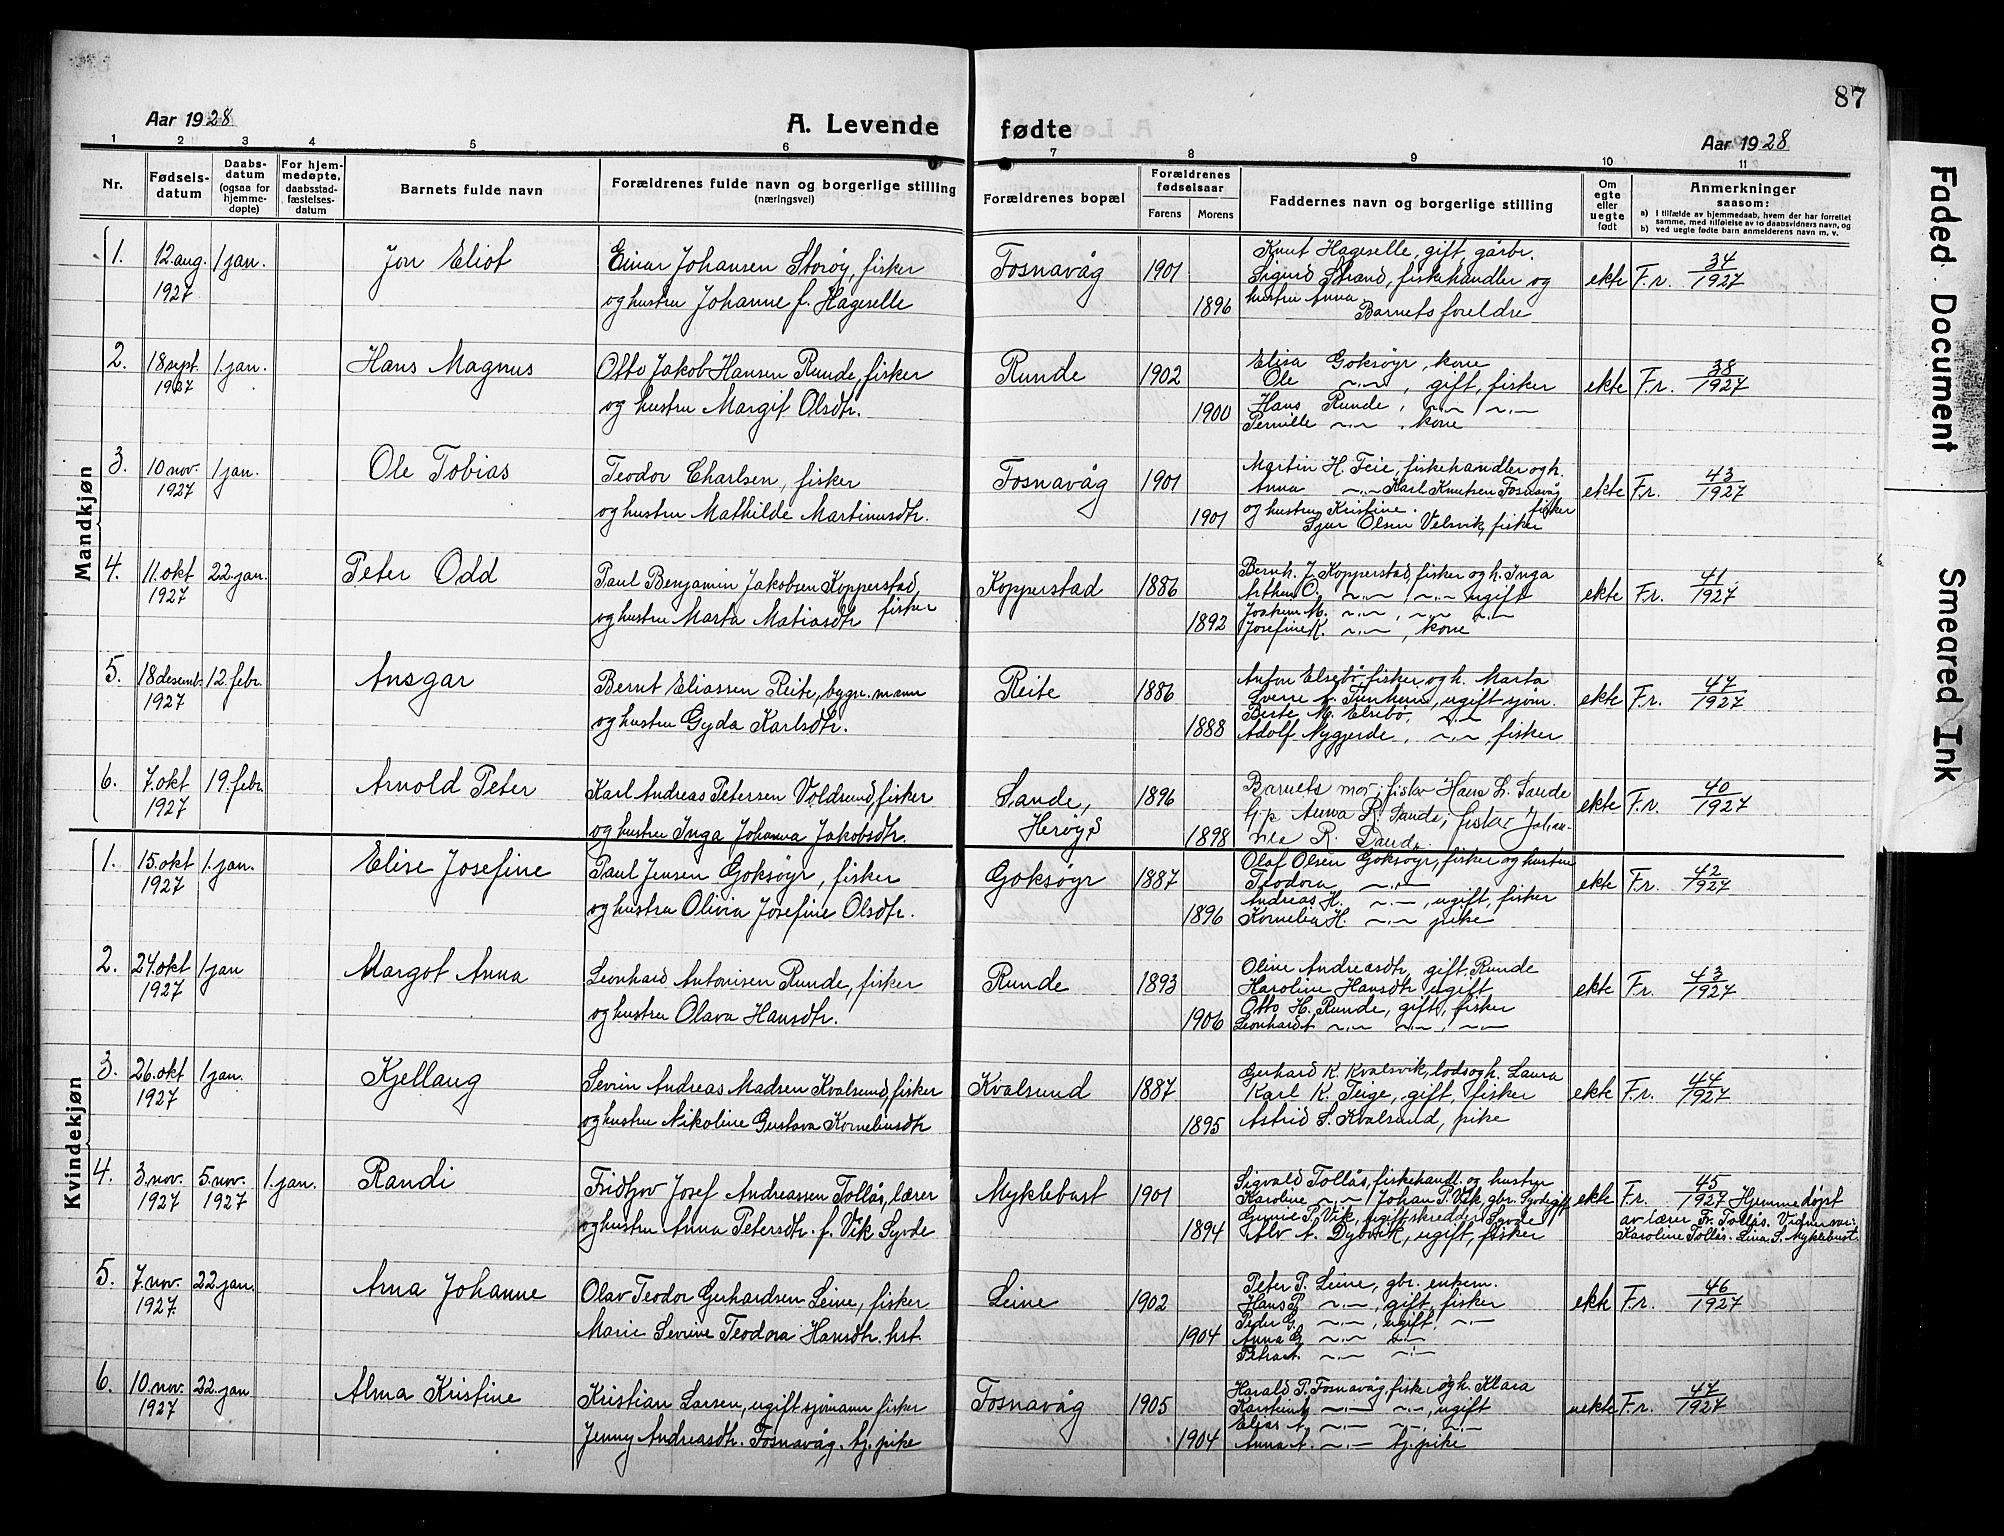 87
Aar 1928
A. Levende fødte
Aar 1928
1 2 3 4 5 6 7 8 9 10 11
Nr.
Fødsels-
datum
Daabs-
datum
(ogsaa for
hjemme-
døpte)
For hjem-
medøpte,
daabsstad-
fæstelses-
datum
Barnets fulde navn
Forældrenes fulde navn og borgerlige stilling
(næringsvei)
Forældrenes bopæl
Forældrenes
fødselsaar
Farens Morens
Faddernes navn og borgerlige stilling
Om
egte
eller
uegte
født
Anmerkninger
saasom:
a) I tilfælde av hjemmedaab, hvem der har forrettet
samme, med tilføielse av to daabsvidners navn, og
b) ved uegte fødte barn anmelderens navn m. v.
Mandkjøn
1. 12. aug. 1927
1 jan.
Jon Eliot
Einar Johansen Storøy, fisker
og hustru Johanne f. Hageselle
Fosnavåg
1901
1896
Knut Hageselle, gift, gårbr.
Sigurd Strand, fiskehandler og
hustru Anna
Barnets foreldre
ekte
F.r. 34/1927
2. 18 sept. 1927
1. jan.
Hans Magnus
Otto Jakob Hansen Runde, fisker
og hustru Margit Olsdtr.
Runde
1902
1900
Elisa Goksøyr, kone
Ole —"— , gift, fisker
Hans Runde, —"— , —"—
Pernille —"— , kone
ekte
F.r. 38/1927
3. 10 nov. 1927
1 jan.
Ole Tobias
Teodor Charlsen, fisker
og hustru Mathilde Martinusdtr.
Fosnavåg
1901
1901
Martin H. Teie, fiskehandler og h.
Anna —"— Karl Knutsen Fosnavåg
og hustru Kristine. fisker
Sjur Olsen Velsvik, fisker
ekte
F.r. 43/1927
4. 11. okt 1927
22. jan.
Peter Odd
Paul Benjamin Jakobsen Kopperstad,
fisker
og hustru Marta Matiasdtr
Kopperstad
1886
1892
Bernh. J. Kopperstad, fisker og h. Inga
Arthur O. —"— , —"— ugift
Joakim M. —"— , —"— —"—
Josefine K. —"— , kone
ekte
F.r. 41/1927
5. 18 desemb. 1927
12. febr.
Ansgar
Bernt Eliassen Reite, bygn. mann
og hustru Gyda Karlsdtr.
Reite
1886
1888
Anton Elsebø, fisker og h. Marta
Sverre A. Tunheim, ugift sjøm.
Berte M. Elsebø, —"—
Adolf Nygjerde, —"— fisker
ekte
F.r. 47/1927
6. 7. okt 1927
19. febr.
Arnold Peter
Karl Andreas Petersen Voldsund, fisker
og hustru Inga Johanna Jakobsdtr.
Sande,
Herøy
1896
1898
Barnets mor; fisker Hans L. Sande
Anna R. Sande; fisker Johan-
nes R. Sande.
ekte
F.r. 40/1927
Kvindekjøn
1. 15. okt 1927
1. jan.
Elise Josefine
Paul Jensen Goksøyr, fisker
og hustru Olivia Josefine Olsdtr.
Goksøyr
1887
1896
Olaf Olsen Goksøyr, fisker og hustru
Teodora —"—
Andreas H. —"— , ugift, fisker
Kornelia H. —"— pike
ekte
F.r. 42/1927
2. 24. okt 1927
1 jan
Margot Anna
Leonhard Antonisen Runde, fisker
og hustru Olava Hansdtr.
Runde
1893
1906
Oline Andreasdtr, gift. Runde
Haroline Hansdtr ugift
Otto H. Runde, gift, fisker
Leonhard t —"— —"— , —"—
ekte
F.r. 43/1927
3. 26. okt 1927
1 jan.
Kjellaug
Sevrin Andreas Madsen Kvalsund, fisker
og hustru Nikoline Gustava Korneliusdtr
Kvalsund
1887
1895
Gerhard K. Kvalsvik, lods og h. Laura
Karl K. Teige, gift, fisker
Astrid S. Kvalsund, pike
ekte
F.r. 44/1927
4. 3. nov. 1927
5. nov. 1927
1. jan.
Randi
Fridtjov Josef Andreassen Tollås, lærer
og hustru Anna Petersdtr. f. Vik Syvde
Myklebust
1901
1894
Sigvald Tollås, fiskehandl. og hustru
Karoline —"— , Johan P. Vik, gbr. Syvde gift
P. Vik, ugift skredder Syvde
A. Dybvik, ugift, fisker
ekte
F.r. 45/1927 Hjemmedøpt
av lærer Fr. Tollås. Vidner var:
Karoline Tollås. Lina S. Myklebust.
5. 7. nov. 1927
22. jan.
Arna Johanne
Olav Teodor Gerhardsen Leine, fisker
Marie Sevrine Teodora Hansdtr. hst.
Leine
1902
1904
Peter P. Leine, gbr. enkem.
Hans P. —"— , gift, fisker
Peder G. —"— , ugift, —"—
Anna G. —"— —"—
Petra A. —"— —"—
ekte
F.r. 46/1927
6. 10. nov. 1927
22. jan
Alma Kristine
Kristian Larsen, ugift sjømann fisker
Jenny Andreasdtr. Fosnavåg, tj. pike
Fosnavåg
1905
1904
Harald P. Fosnavåg, fisker og h. Klara
—"— —"—, ugift
Elias A. —"— —"— , —"—
Anna A. —"— tj. pike
uekte
F.r. 47/1927
Faded Document
Smeared Ink